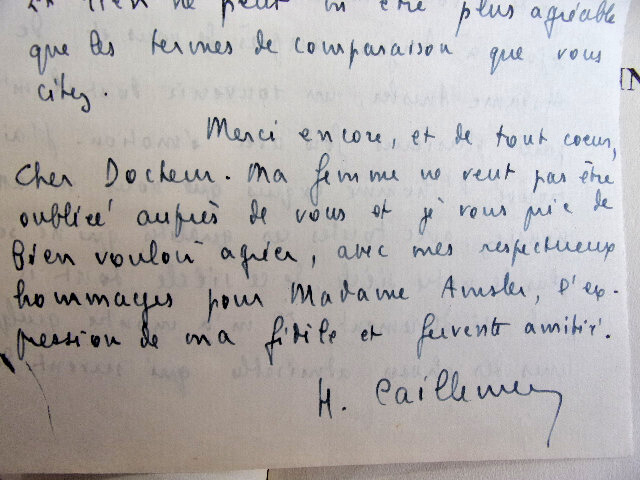 et rien ne peut m'être plus agréable
que les termes de comparaison que vous
citez.
Merci encore, et de tout coeur,
Cher Docteur. Ma femme ne veut pas être
oubliée auprès de vous et je vous prie de
bien vouloir agréer, avec mes respectueux
hommages pour Madame Amsler, l'ex-
pression de ma fidèle et fervente amitié.
H. Caillemer